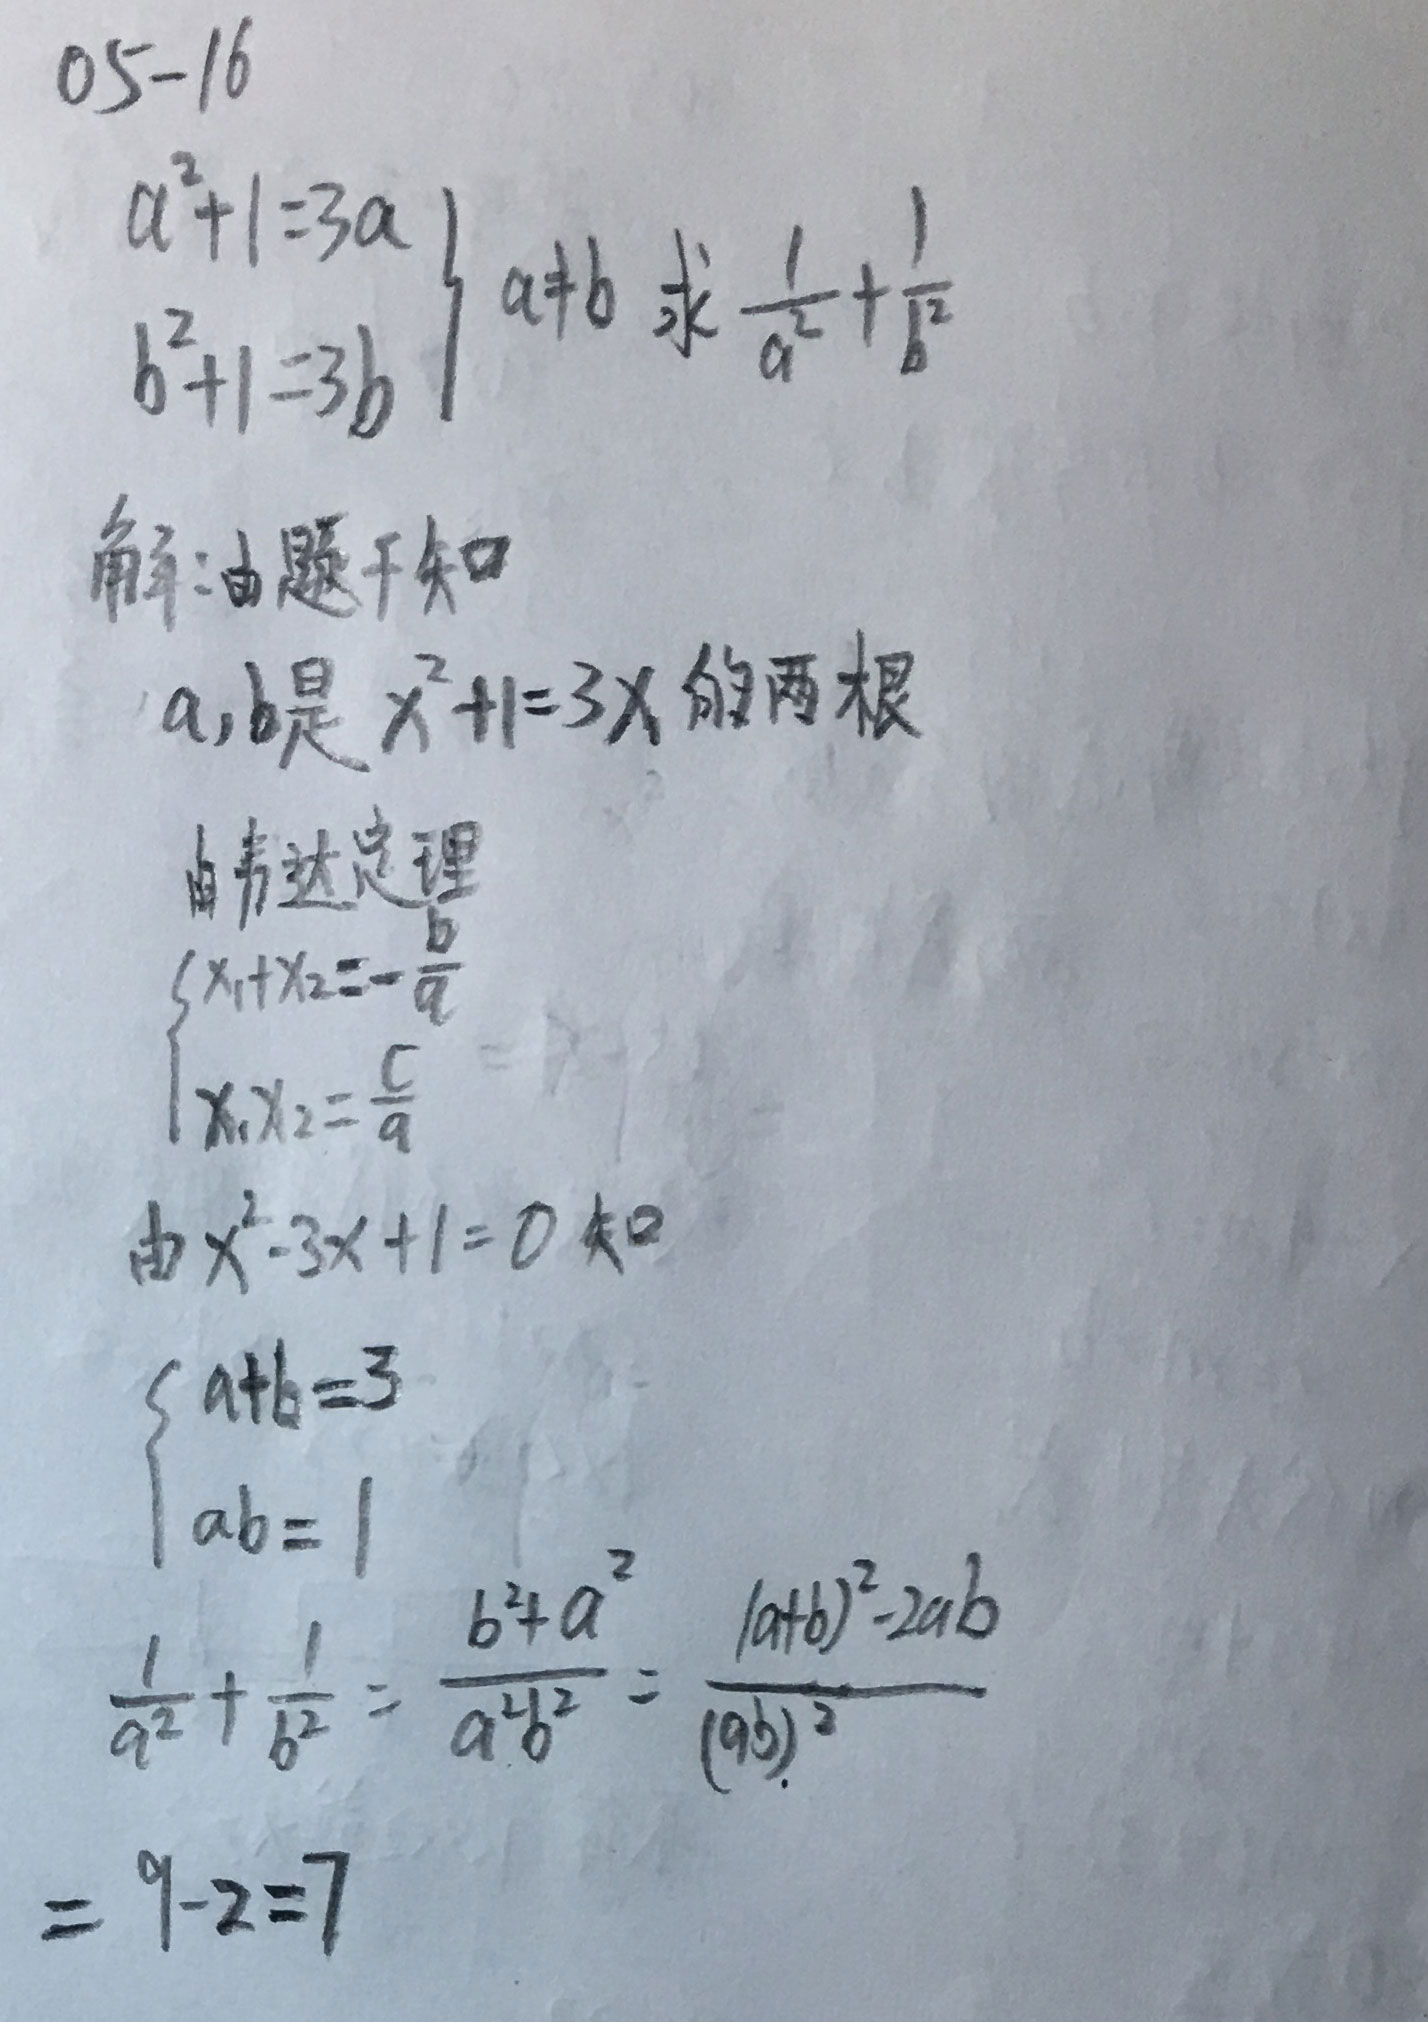 05-16
a²+1=3a
b²+1=3b } a≠b 求 1/a² + 1/b²
解:由题干知
a,b是 x²+1=3x 的两根
由韦达定理
{ x₁+x₂=-b/a
x₁x₂=c/a
由x²-3x+1=0知
{ a+b=3
ab=1
1/a² + 1/b² = (b²+a²)/(a²b²) = ((a+b)²-2ab)/(ab)²
=9-2=7